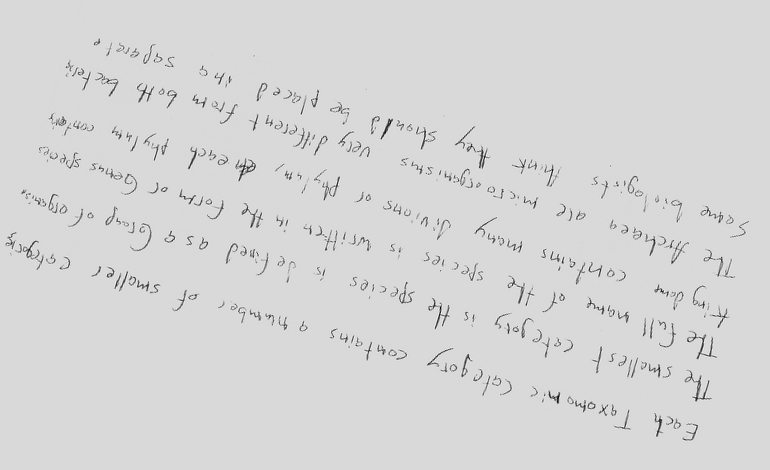 Each Taxomomic category contains a number of smaller categoris
The smallest category is the species is defined as a Group of organisim
The full name of the species is written in the form of Genus species
kingdome contains many divions or phylum, each phylum contains
The Archaea are microorganisms very different from both bacteria
Some biologists think they should be placed in a saparate